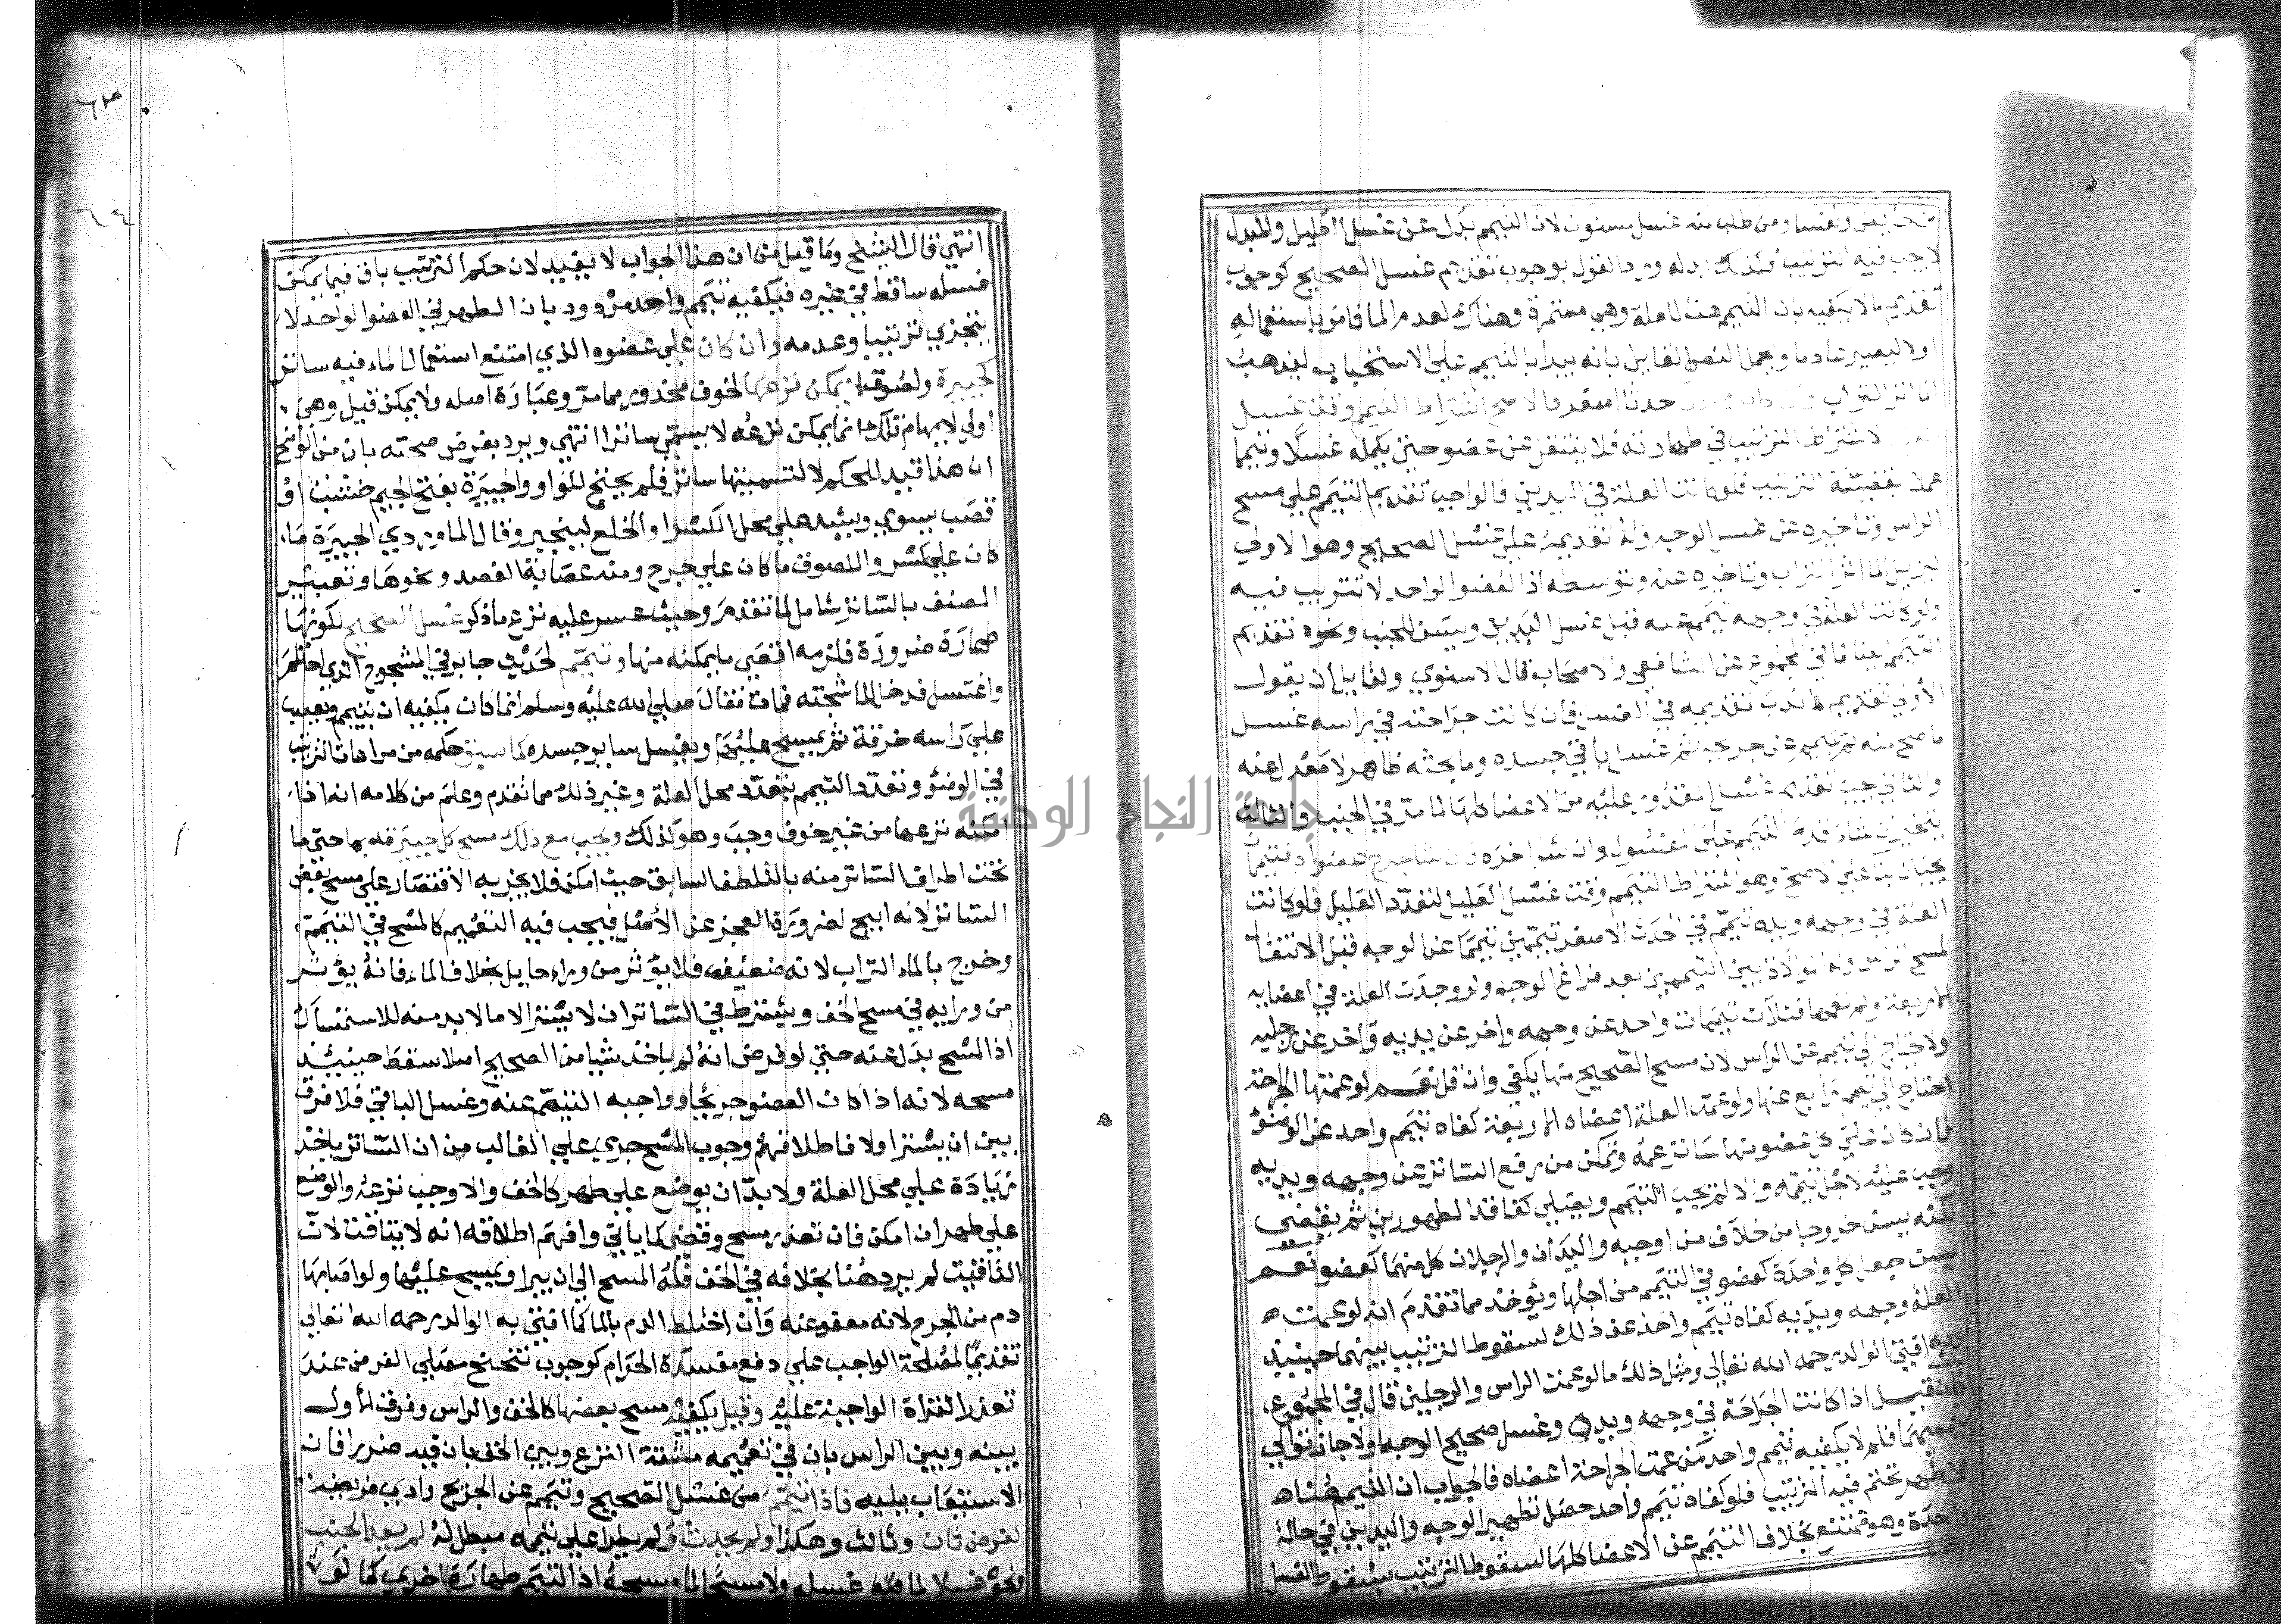 وحائض ونفسا ومن طلب منه غسل مسنون لان التيمم بدل عن غسل العليل والمبدل
لا يجب فيه الترتيب فكذلك بدله ورد القول بوجوب تقديم غسل الصحيح كوجوب
تقديم ما لا يكفيه بان التيمم هنا للعلة وهي مستمرة وهناك لعدم الما فامر باستعماله
اولا ليصير عادما وحمل النص القايل بانه يبدا بالتيمم على الاستحباب ليذهب
الما اثر التراب حدثا اصغر فالاصح اشتراط التيمم وقت غسل
لاشتراط الترتيب في طهارته فلا ينتقل عن عضو حتى يكمله غسلا وتيمما
عملا بقضية الترتيب فلو كانت العلة في اليدين فالواجب تقديم التيمم علي مسح
الراس وتاخيره عن غسل الوجه وله تقديمه على غسل الصحيح وهو الاولي
ليزيل الما اثر التراب وتاخيره عنه وتوسطه اذ العضو الواحد لا ترتيب فيه
ولو كانت العلة في وجهه تيمم عنه قبل غسل اليدين ويسن للجنب ونحوه تقديم
التيمم هنا كما في المجموع عن الشافعي والاصحاب قال الاسنوي ولقايل ان يقول
الاولي تقديم ما ندب تقديمه في الغسل فان كانت جراحته في راسه غسل
ما صح منه ثم تيمم عن جريحه ثم غسل باقي جسده وما بحثه ظاهر لا معدل عنه
والثاني يجب تقديم غسل المقدور عليه من الاعضا كلها لما مر في الجنب والثالث
يتخير ان شاء قدم التيمم على المغسول وان شا اخره فان جرح عضواه فتيممان
يجبان بنا على الاصح وهو اشتراط التيمم وقت غسل العليل لتعدد العليل فلو كانت
العلة في وجهه ويده تيمم في الحدث الاصغر تيممين تيمما عن الوجه قبل الانتقال
لمسح الراس وله الموالاة بين التيممين بعد فراغ الوجه ولو وجدت العلة في اعضايه
الاربعة ولم تعمها فثلاث تيممات واحد عن وجهه واخر عن يديه واخر عن رجليه
ولا يحتاج الي تيمم عن الراس لان مسح الصحيح منها يكفي وان قل نعم لو عمتها الجراحة
احتاج الي تيمم رابع عنها ولو عمت العلة اعضاه الاربعة كفاه تيمم واحد عن الوضو
فان كان علي كل عضو منها ساتر عمه وتمكن من رفع الساتر عن وجهه ويديه
وجب عليه لاجل تيممه والا لم يجب التيمم ويصلي كفاقد الطهورين ثم يقضي
لكنه يسن خروجا من خلاف من اوجبه واليدان والرجلان كل منهما كعضو نعم
يسن جعل كل واحدة كعضو في التيمم من اجلها ويؤخذ مما تقدم انه لو عمت
العلة وجهه ويديه كفاه تيمم واحد عن ذلك لسقوط الترتيب بينهما حينيذ
وبه افتي الوالد رحمه الله تعالي ومثل ذلك ما لو عمت الراس والرجلين قال في المجموع
فان قيل اذا كانت الجراحة في وجهه ويده وغسل صحيح الوجه اولا جاز توالي
تيمميهما فلم لا يكفيه تيمم واحد كمن عمت الجراحة اعضاه فالجواب ان التيمم هنا
في طهر تحتم فيه الترتيب فلو كفاه تيمم واحد حصل تطهير الوجه واليدين في حالة
واحدة وهو ممتنع بخلاف التيمم عن الاعضا كلها لسقوط الترتيب بسقوط الغسل
انتهي قال الشيخ وما قيل من ان هذا الجواب لا يفيد لان حكم الترتيب باق فيما يمكن
غسله ساقط في غيره فيكفيه تيمم واحد مردود بان الطهر في العضو الواحد لا
يتجزي ترتيبا وعدمه وان كان علي عضوه الذي امتنع استعمال الماء فيه ساتر
كجبيرة ولصوق لا يمكن نزعها لخوف محذور مما مر وعبارة اصله ولا يمكن قيل وهي
اولي لايهام تلك انما يمكن نزعه لا يسمي ساترا انتهي ويرد بفرض صحته بان من الواضح
ان هذا قيد للحكم لا لتسميتها ساتر فلم يحتج للواو والجبيرة بفتح الجيم خشب او
قصب يسوي ويشد علي محل الكسر او الخلع لينجبر وقال الماوردي الجبيرة ما
كان علي كسر واللصوق ما كان علي جرح ومنه عصابة الفصد ونحوها وتعبير
المصنف بالساتر شامل لما تقدم وحيث عسر عليه نزع ما ذكر غسل الصحيح لكونها
طهارة ضرورة فلزمه اقصي ما يمكنه منها وتيمم لحديث جابر في المشجوج الذي احتلم
واغتسل فدخل الما شجته فمات فقال صلي الله عليه وسلم انما كان يكفيه ان يتيمم ويعصب
علي راسه خرقة ثم يمسح عليها ويغسل ساير جسده كما سبق حكمه من مراعات الترتيب
في الوضو وتعدد التيمم بتعدد محل العلة وغير ذلك مما تقدم وعلم من كلامه انه اذا
مكنه نزعها من غير خوف وجب وهو كذلك ويجب مع ذلك مسح كل جبيرته بما حتي ما
تحت اطراف الساتر منه بالتلطف السابق حيث امكن فلا يجزيه الاقتصار علي مسح بعض
الساتر لانه ابيح لضرورة العجز عن الاصل فيجب فيه التعميم كالمسح في التيمم
وخرج بالماء التراب لانه ضعيف فلا يؤثر من وراء حايل بخلاف الماء فانه يؤثر
من ورايه في مسح الخف ويشترط في الساتر ان لا يستر الا ما لا بد منه للاستمساك
اذ المسح بدل عنه حتي لو فرض انه لم ياخذ شيا من الصحيح اصلا سقط حينيذ
مسحه لانه اذا كان العضو جريحا وواجبه التيمم عنه وغسل الباقي فلا فرق
بين ان يستر اولا فاطلاقهم وجوب المسح جري علي الغالب من ان الساتر ياخذ
زيادة علي محل العلة ولا بد ان يوضع علي طهر كالخف والا وجب نزعه والوضع
علي طهر ان امكن فان تعذر مسح وقضي كما ياتي وافهم اطلاقه انه لا يتاقت لان
التاقيت لم يرد هنا بخلافه في الخف فله المسح الي ان يبرا ويمسح عليها ولو اصابها
دم من الجرح لانه معفو عنه وان اختلط الدم بالما كما افتي به الوالد رحمه الله تعالي
تقديما لمصلحة الواجب علي دفع مفسدة الحرام كوجوب تنحنح مصلي الفرض عند
تعذر القراة الواجبة عليه وقيل يكفيه مسح بعضها كالخف والراس وفرق الاول
بينه وبين الراس بان في تعميمه مشقة النزع وبين الخف بان فيه ضررا فان
الاستيعاب يبليه فاذا تيمم من غسل الصحيح وتيمم عن الجريح وادي فريضة
لفرض ثان وثالث وهكذا ولم يحدث ولم يطرا علي تيممه مبطل له لم يعد الجنب
ونحوه غسلا لما غسله ولا مسحا لما مسحه اذ التيمم طهارة اخري كما لو
جامعة النجاح الوطنية